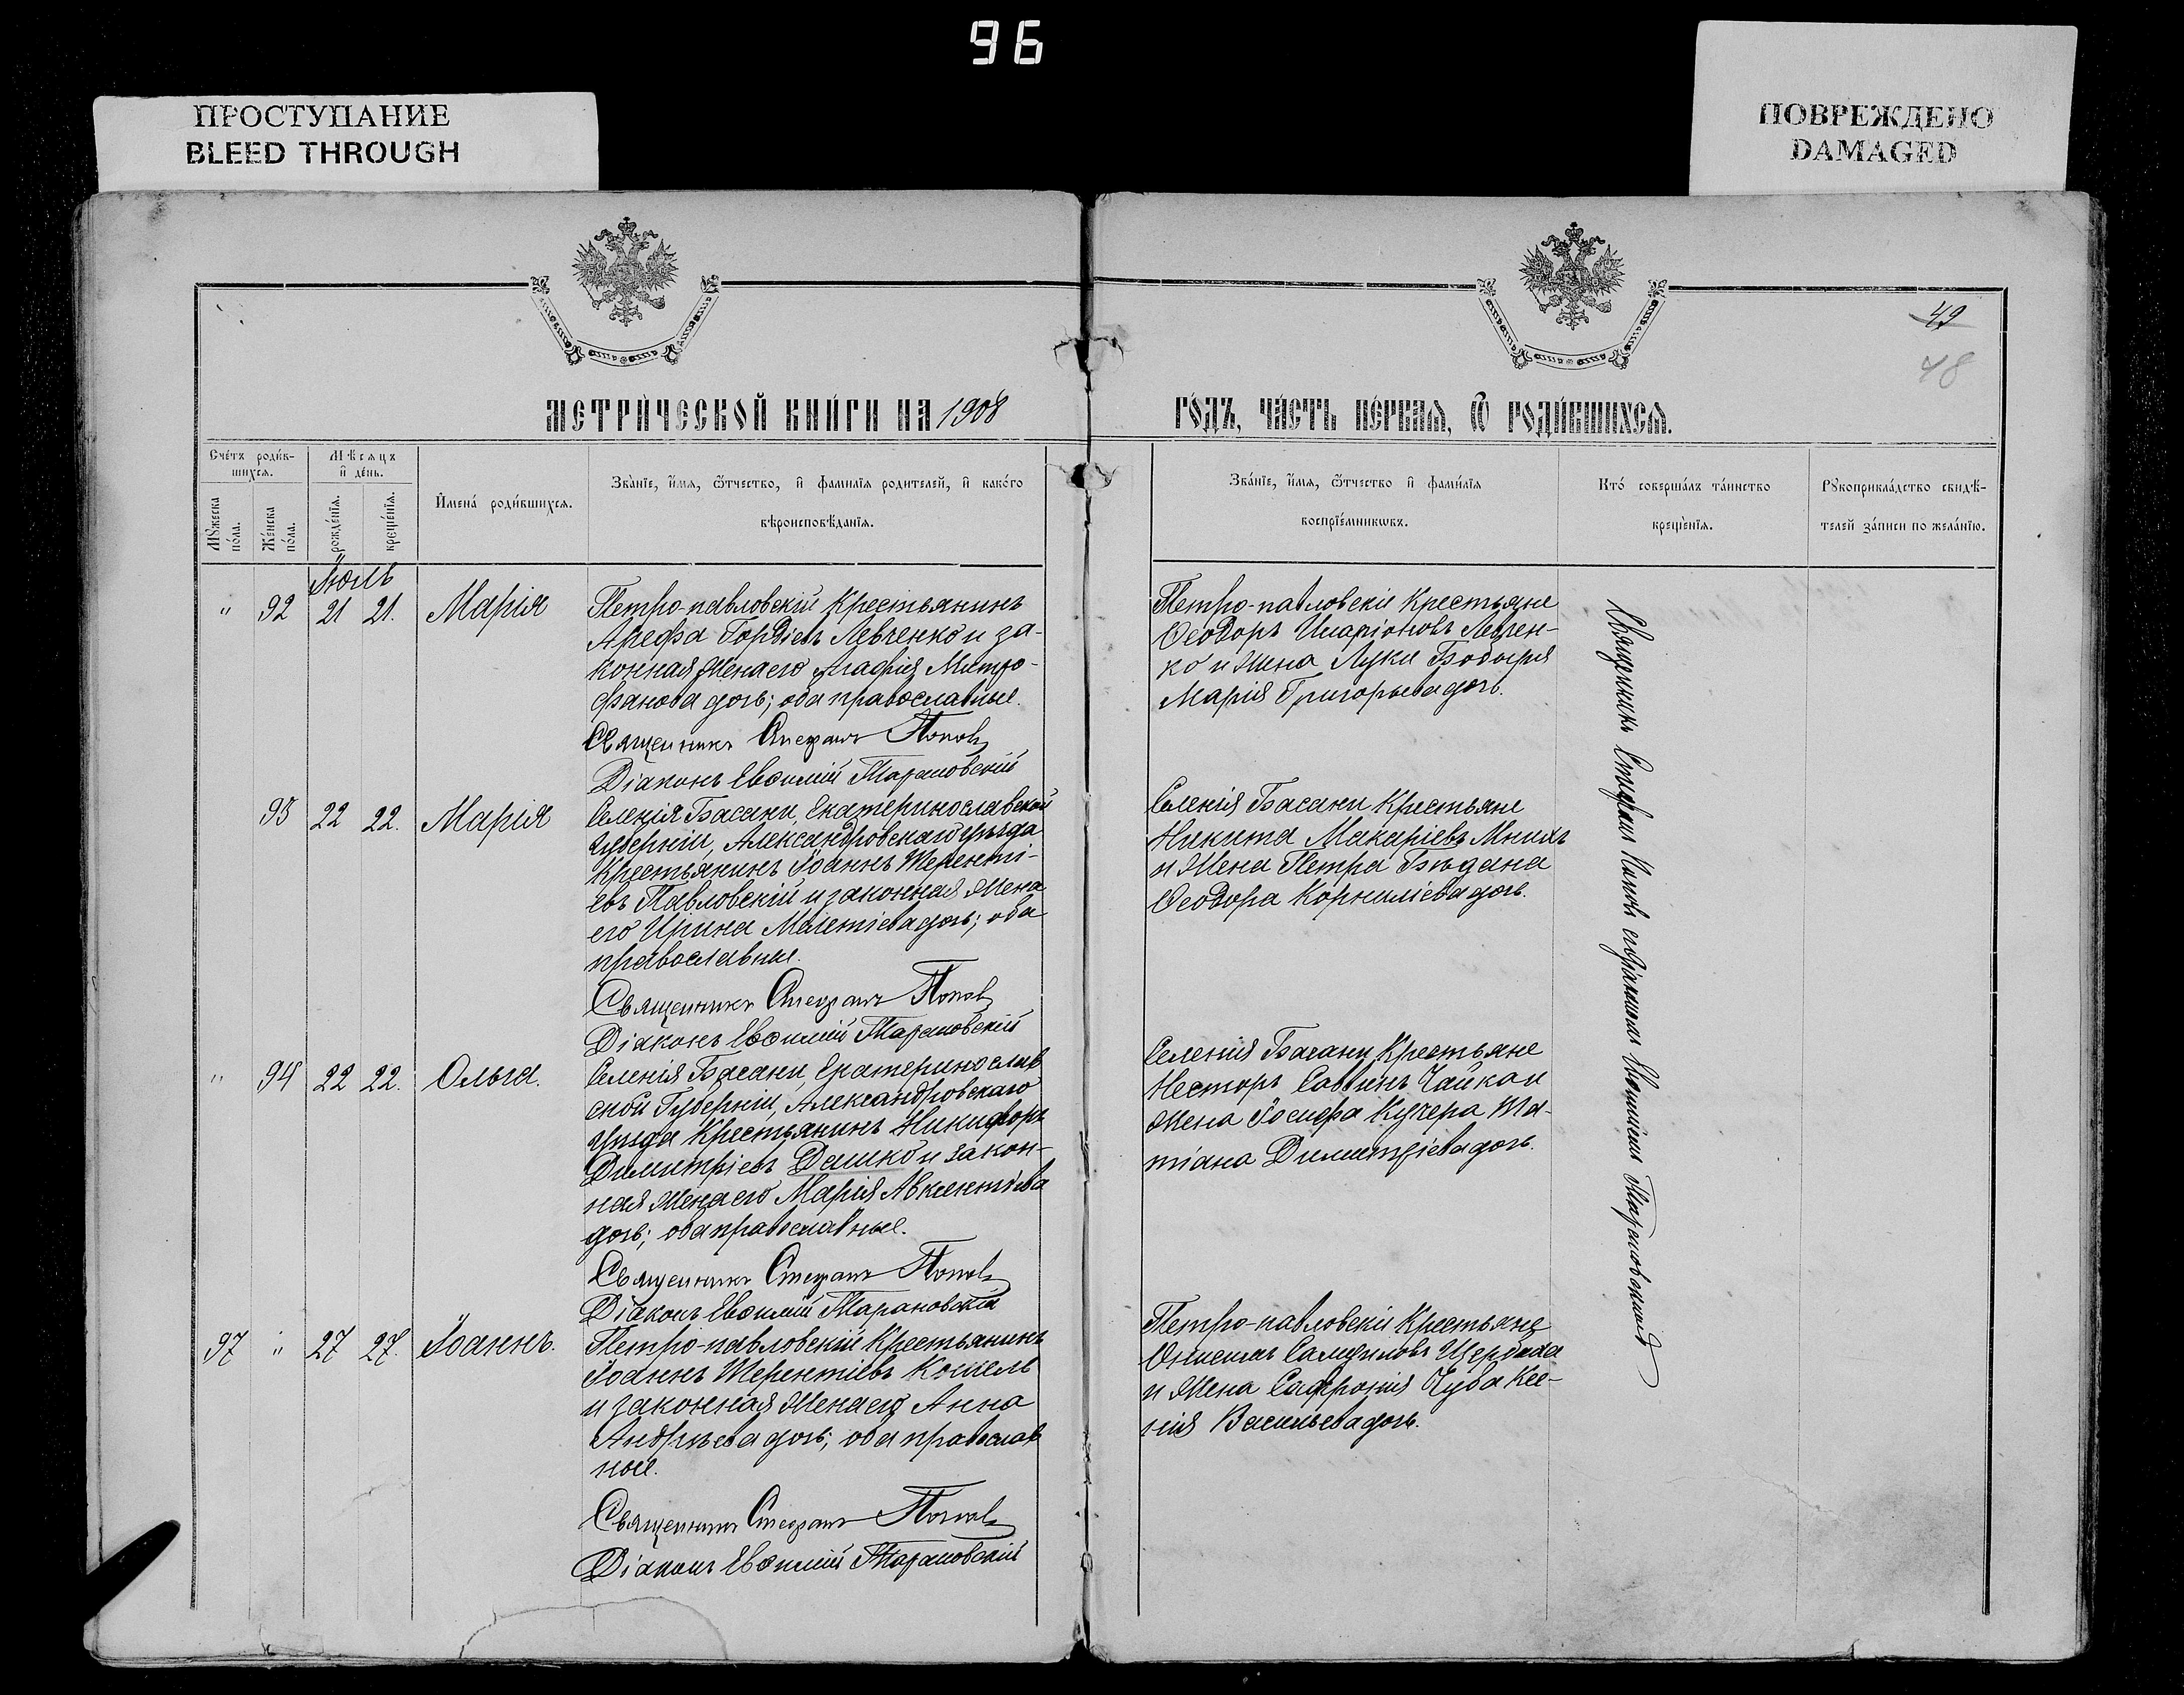 96
ПРОСТУПАНИЕ
BLEED THROUGH
ПОВРЕЖДЕНО
DAMAGED
49
48
МЕТРИ́ЧЕСКОЙ КНИ́ГИ НА 1908
ГО́ДЪ, ЧА́СТЬ ПЕ́РВАЯ, Ѿ РОДИ́ВШИХСЯ.
Сче́тъ роди́в-
шихся.
Мѣсяцъ
и де́нь.
Мꙋжеска
по́ла.
Же́нска
по́ла.
рожде́нїя.
креще́нїя.
Имена́ роди́вшихся.
Зва́нїе, и́мя, ѻ́тчество, и фамилїя родителей, и како́го
вѣроисповѣ́данїя.
Зва́нїе, и́мя, ѻ́тчество и фами́лїя
воспрїе́мникѡвъ.
Кто́ соверша́лъ та́инство
креще́нїя.
Рꙋкоприкла́дство свидѣ́-
телей за́писи по жела́нїю.
Іюль
" 92 21 21. Марія
Петро-павловскій Крестьянинъ
Арефа Гордіевъ Левченко и за-
конная Жена его Агафія Митро-
фанова дочь; оба православные.
Священникъ Стефанъ Поповъ
Діаконъ Евѳимій Тарановскій
Петро-павловскіе Крестьяне
Ѳеодоръ Иларіоновъ Левчен-
ко и Жена Луки Бобыря
Марія Григорьева дочь.
93 22 22. Марія
Селенія Басани, Екатеринославской
Губерніи, Александровскаго уѣзда
Крестьянинъ Іоаннъ Теренті-
евъ Павловскій и законная Жена
его Ирина Мелетіева дочь; оба
православные.
Священникъ Стефанъ Поповъ
Діаконъ Евѳимій Тарановскій
Селенія Басани Крестьяне
Никита Макаріевъ Мнихъ
и Жена Петра Бѣдана
Ѳеодора Корниліева дочь.
" 94 22 22. Ольга.
Селенія Басани, Екатеринослав
ской Губерніи, Александровскаго
уѣзда Крестьянинъ Никифоръ
Димитріевъ Дашко и закон-
ная Жена его Марія Авксентіева
дочь; оба православные.
Священникъ Стефанъ Поповъ
Діаконъ Евѳимій Тарановскій
Селенія Басани Крестьяне
Несторъ Саввинъ Чайка и
Жена Іосифа Кучера Та-
тіана Димитріева дочь.
97 " 27 27. Іоаннъ.
Петро-павловскій Крестьянинъ
Іоаннъ Терентіевъ Кошель
и законная Жена его Анна
Андреева дочь; оба православ
ные.
Священникъ Стефанъ Поповъ
Діаконъ Евѳимій Тарановскій
Петро-павловскіе Крестьяне
Онисимъ Самуиловъ Щербака
и Жена Сафронія Чуба Ксе-
нія Васильева дочь.
Священникъ Стефанъ Поповъ съ діакономъ Евѳиміемъ Тарановскимъ